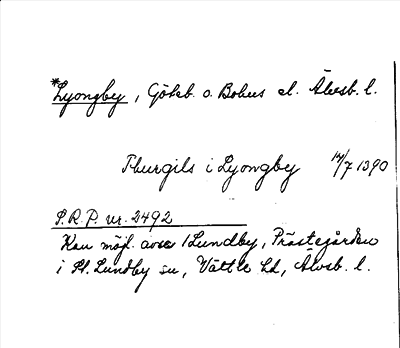 *Lyongby, Göteb. o. Bohus el. Älvsb. l.
Thurgils i Lyongby 14/7 1390
S.R.P. nr. 2492
Kan möjl. avse 1 Lundby, Prästegården
i St. Lundby sn, Vättle hd, Älvsb. l.